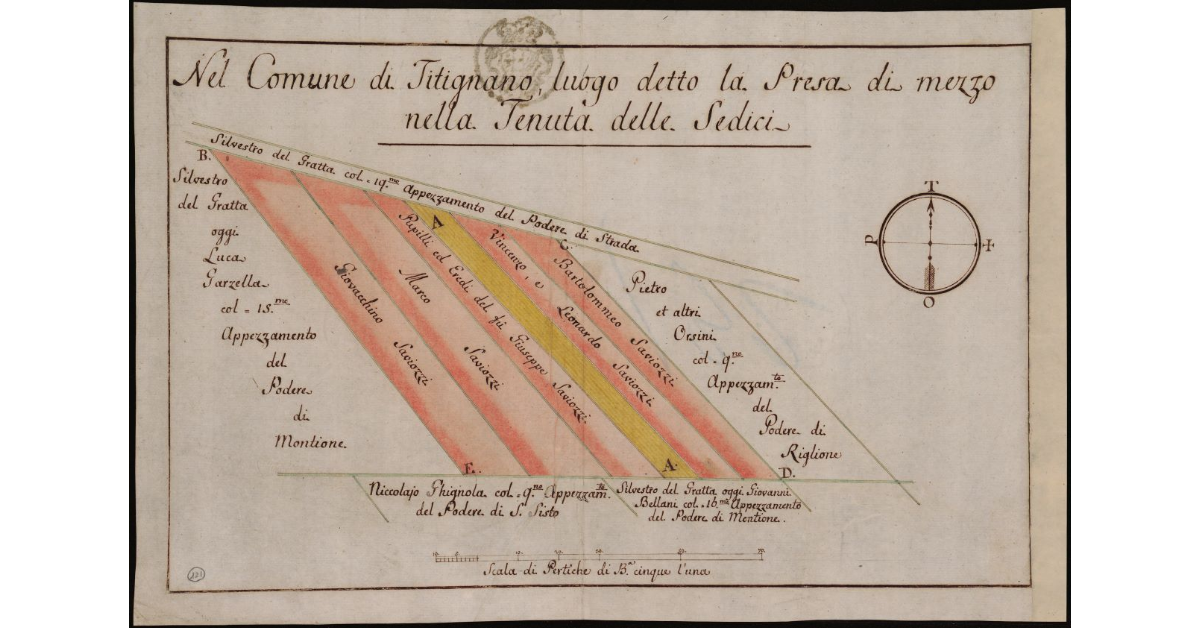 Nel Comune di Titignano, luogo detto la Presa di mezzo
nella Tenuta delle Sedici
Silvestro del Gratta col = 19.me Appezzamento del Podere di Strada
B.
Silvestro
del Gratta
oggi
Luca
Garzella
col = 18.me
Appezzamento
del
Podere
di
Montione.
Giovacchino Saviozzi
Marco Saviozzi
Pupilli ed Eredi del fù Giuseppe Saviozzi
A
A.
Vincenzo, e Leonardo Saviozzi
Bartolommeo Saviozzi
C.
Pietro
et altri
Orsini
col = 9.ne
Appezzam.to
del
Podere di
Riglione
T
P
O
E.
D.
Niccolajo Ghignola col = 9.ne Appezzam.to
del Podere di S. Sisto
Silvestro del Gratta oggi Giovanni
Bellani col = 16.me Appezzamento
del Podere di Montione.
Scala di Pertiche di B.a cinque l'una
121